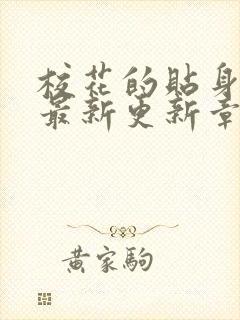 校花的贴身
最新更新章
黄家驹